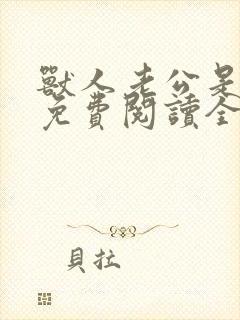 獸人老公是
免費閱讀全
貝拉